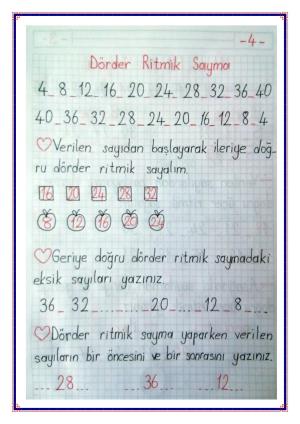 -4-
Dörder Ritmik Sayma
4_8_12_16_20_24_28_32_36_40
40_36_32_28_24_20_16_12_8_4
Verilen sayıdan başlayarak ileriye doğ-
ru dörder ritmik sayalım.
16 20 24 28 32
8 12 16 20 24
Geriye doğru dörder ritmik saymadaki
eksik sayıları yazınız.
36_32_............20......12_8......
Dörder ritmik sayma yaparken verilen
sayıların bir öncesini ve bir sonrasını yazınız.
....28.... ....36.... ....12....